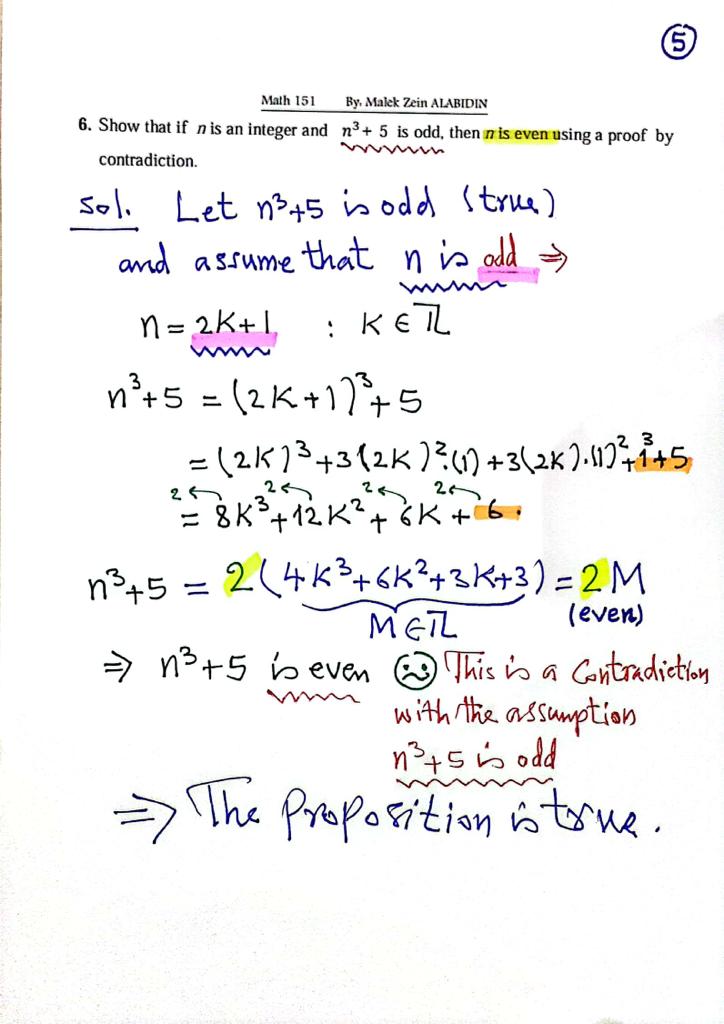 5
Math 151 By. Malek Zein ALABIDIN
6. Show that if n is an integer and n³+ 5 is odd, then n is even using a proof by
contradiction.
Sol. Let n³+5 is odd (true)
and assume that n is odd ⇒
n = 2K+1 : K ∈ ℤ
n³+5 = (2K+1)³+5
= (2K)³+3(2K)².(1)+3(2K).(1)²+1³+5
2 2 2 2
= 8K³+12K²+6K+6.
n³+5 = 2(4K³+6K²+3K+3) = 2M
M∈ℤ (even)
⇒ n³+5 is even ☹ This is a Contradiction
with the assumption
n³+5 is odd
⇒ The Proposition is true.